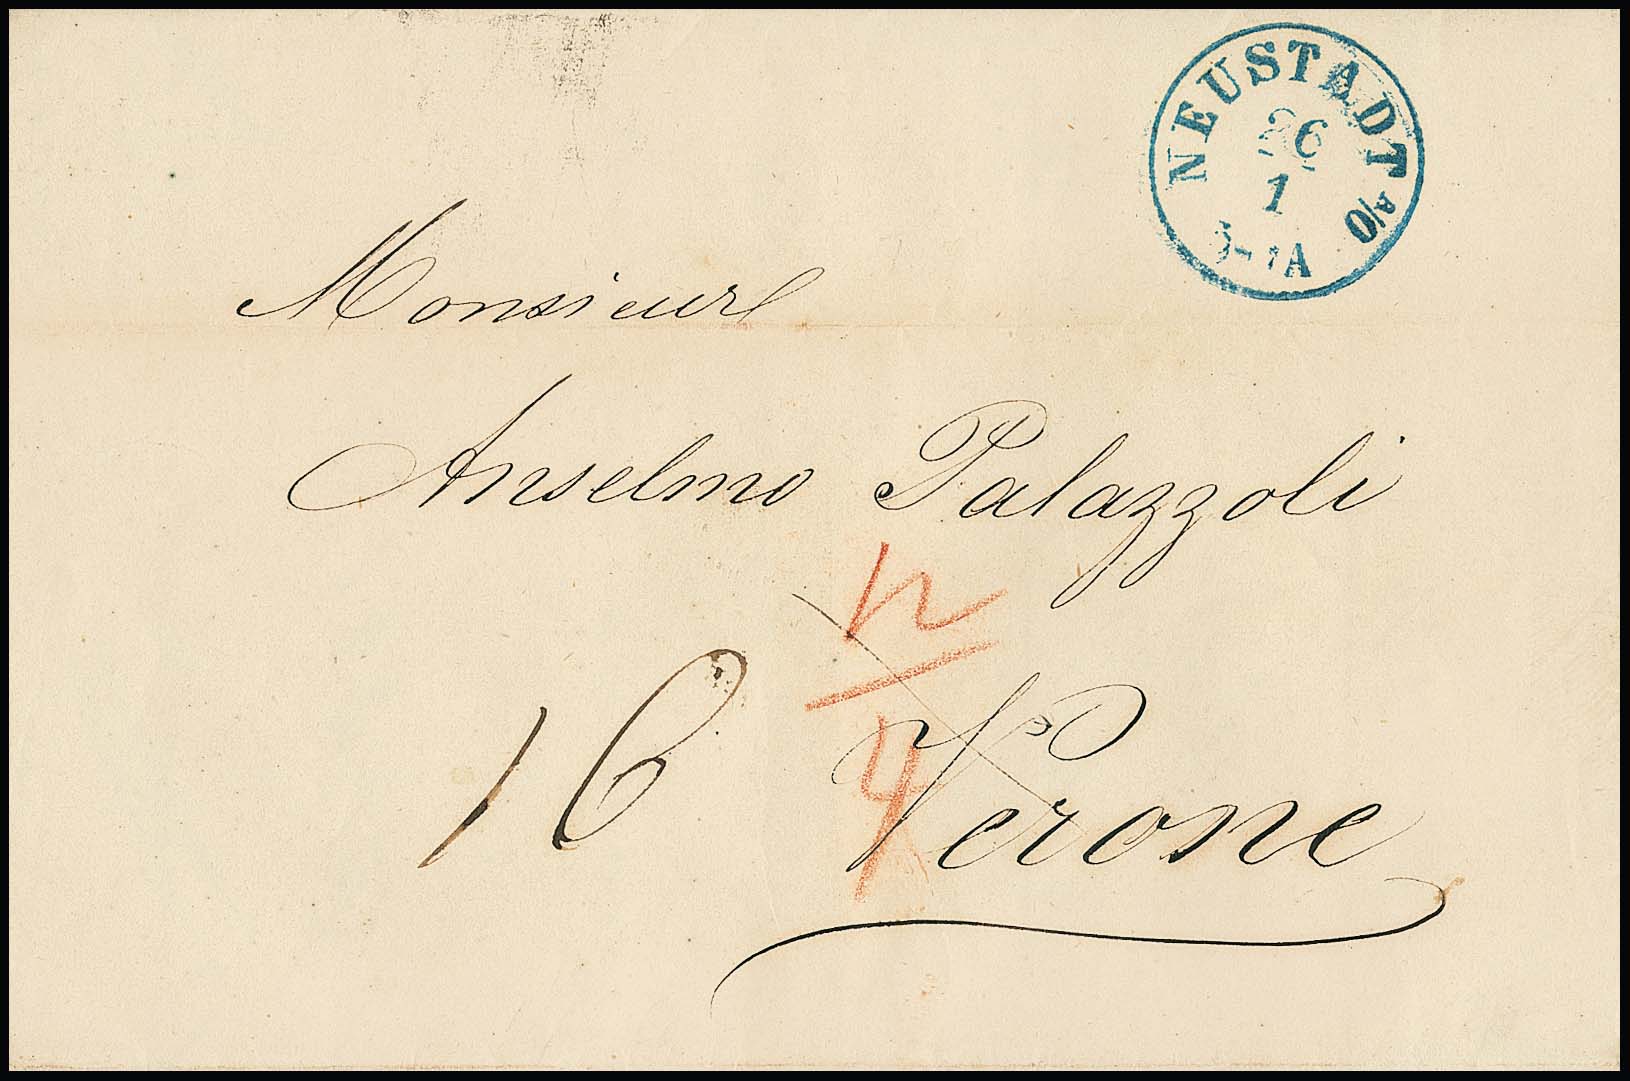 NEUSTADT a/O
26
1
Monsieur
Anselmo Palazzoli
12
4
16
Verone